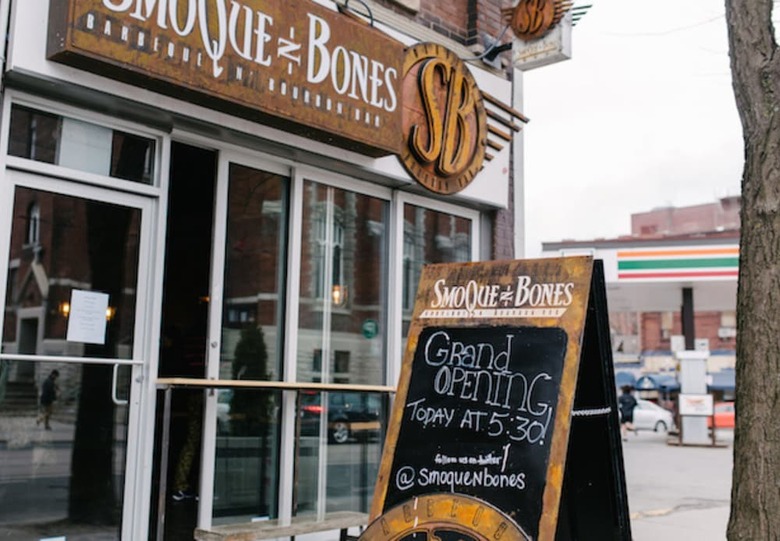 SMOQUE N BONES
BARBEQUE N' BOURBON BAR
SB
SB
SMOQUE N BONES
GRAND
OPENING
TODAY AT 5:30!
follow us on twitter!
@SMOQUENBONES